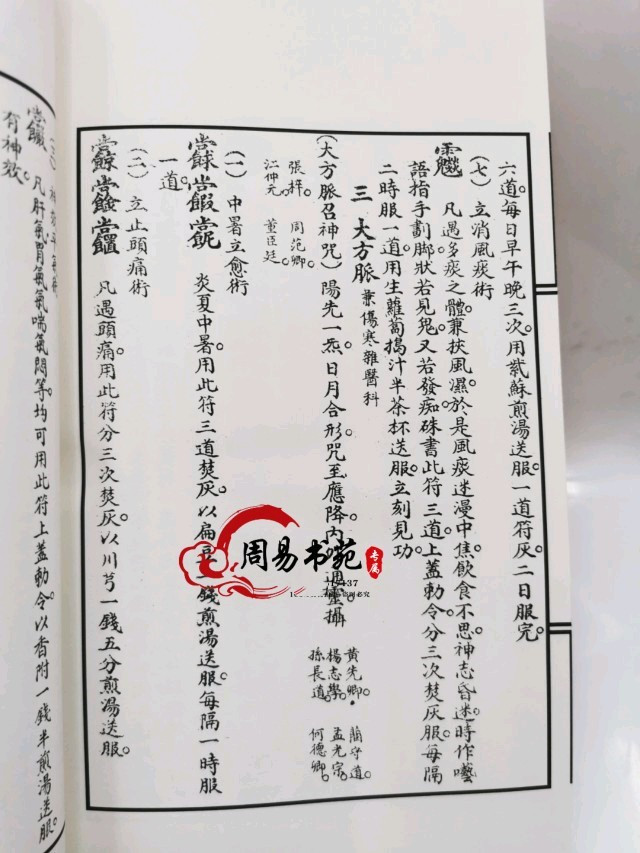 六道。每日早午晚三次。用紫蘇煎湯送服。一道符灰。二日服完。
(七) 立消風痰術
凡遇多痰之體。兼挾風濕。於是風痰迷漫中焦。飲食不思。神志昏迷。時作囈
語。指手劃脚。狀若見鬼。又若發痴。硃書此符三道。上蓋勅令。分三次焚灰服。每隔
二時服一道。用生蘿蔔搗汁半茶杯送服。立刻見功。
三 大方脈 兼傷寒雜醫科
(大方脈召神咒) 陽先一炁。日月合形。咒至應降。内 攝
黄先卿。 藺守道。
楊志學。 孟光宗。
孫長道。 何德卿。
張梓。 周范卿。
江仲元。 董臣廷。
(一) 中暑立愈術
炎夏中暑。用此符三道焚灰。以扁豆一錢煎湯送服。每隔一時服
一道。
(二) 立止頭痛術
凡遇頭痛。用此符分三次焚灰。以川芎一錢五分煎湯送服。
(三)
凡肝氣胃氣氣喘氣悶等。均可用此符上蓋勅令。以香附一錢半煎湯送服。
有神效。
周易书苑
专属